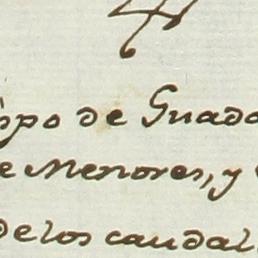 spo de Guada
e Menores, y
de los caudal